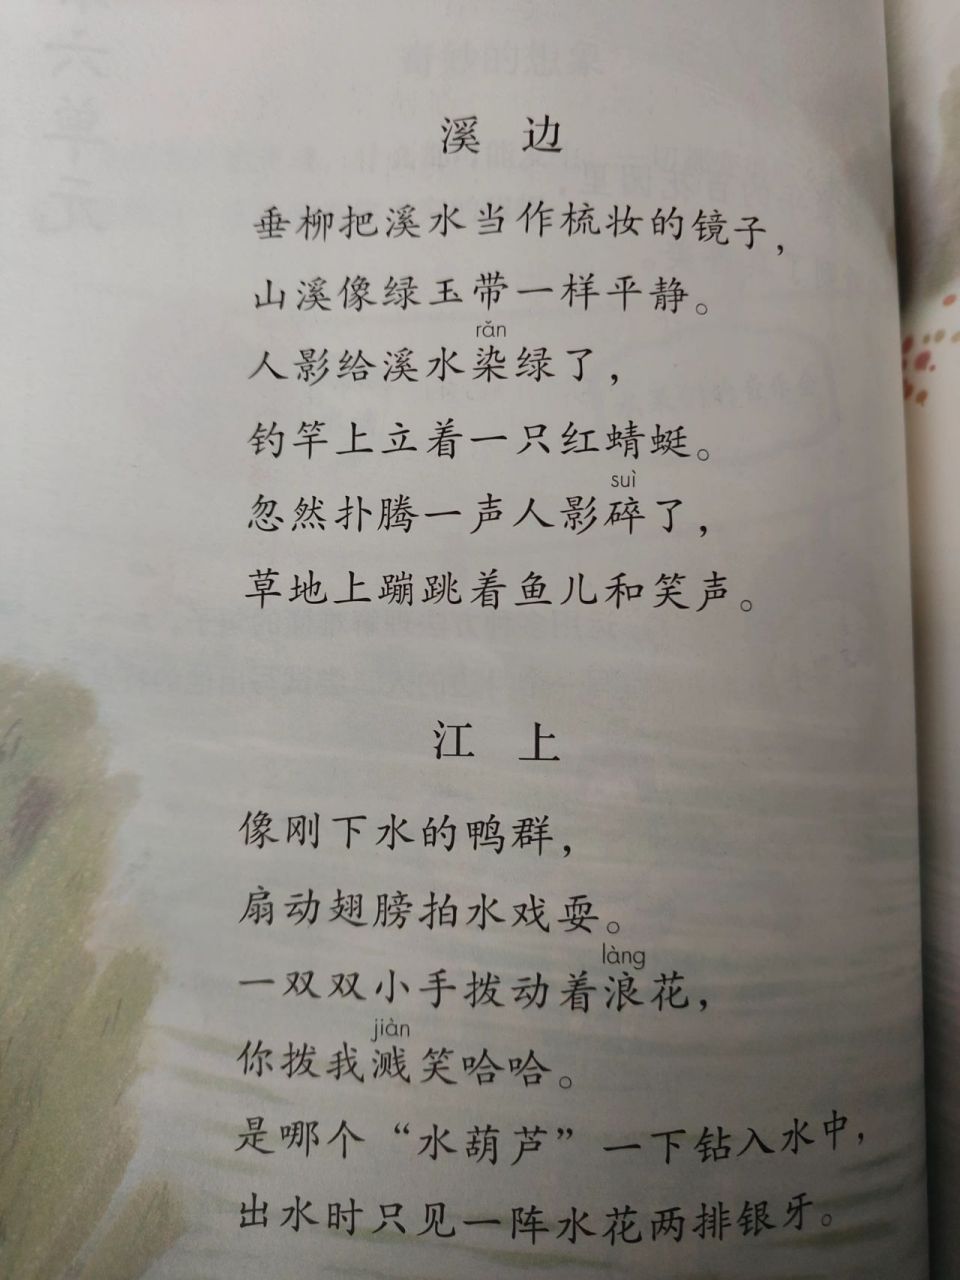 溪 边
垂柳把溪水当作梳妆的镜子，
山溪像绿玉带一样平静。
rǎn
人影给溪水染绿了，
钓竿上立着一只红蜻蜓。
suì
忽然扑腾一声人影碎了，
草地上蹦跳着鱼儿和笑声。
江 上
像刚下水的鸭群，
扇动翅膀拍水戏耍。
làng
一双双小手拨动着浪花，
jiàn
你拨我溅笑哈哈。
是哪个“水葫芦”一下钻入水中，
出水时只见一阵水花两排银牙。